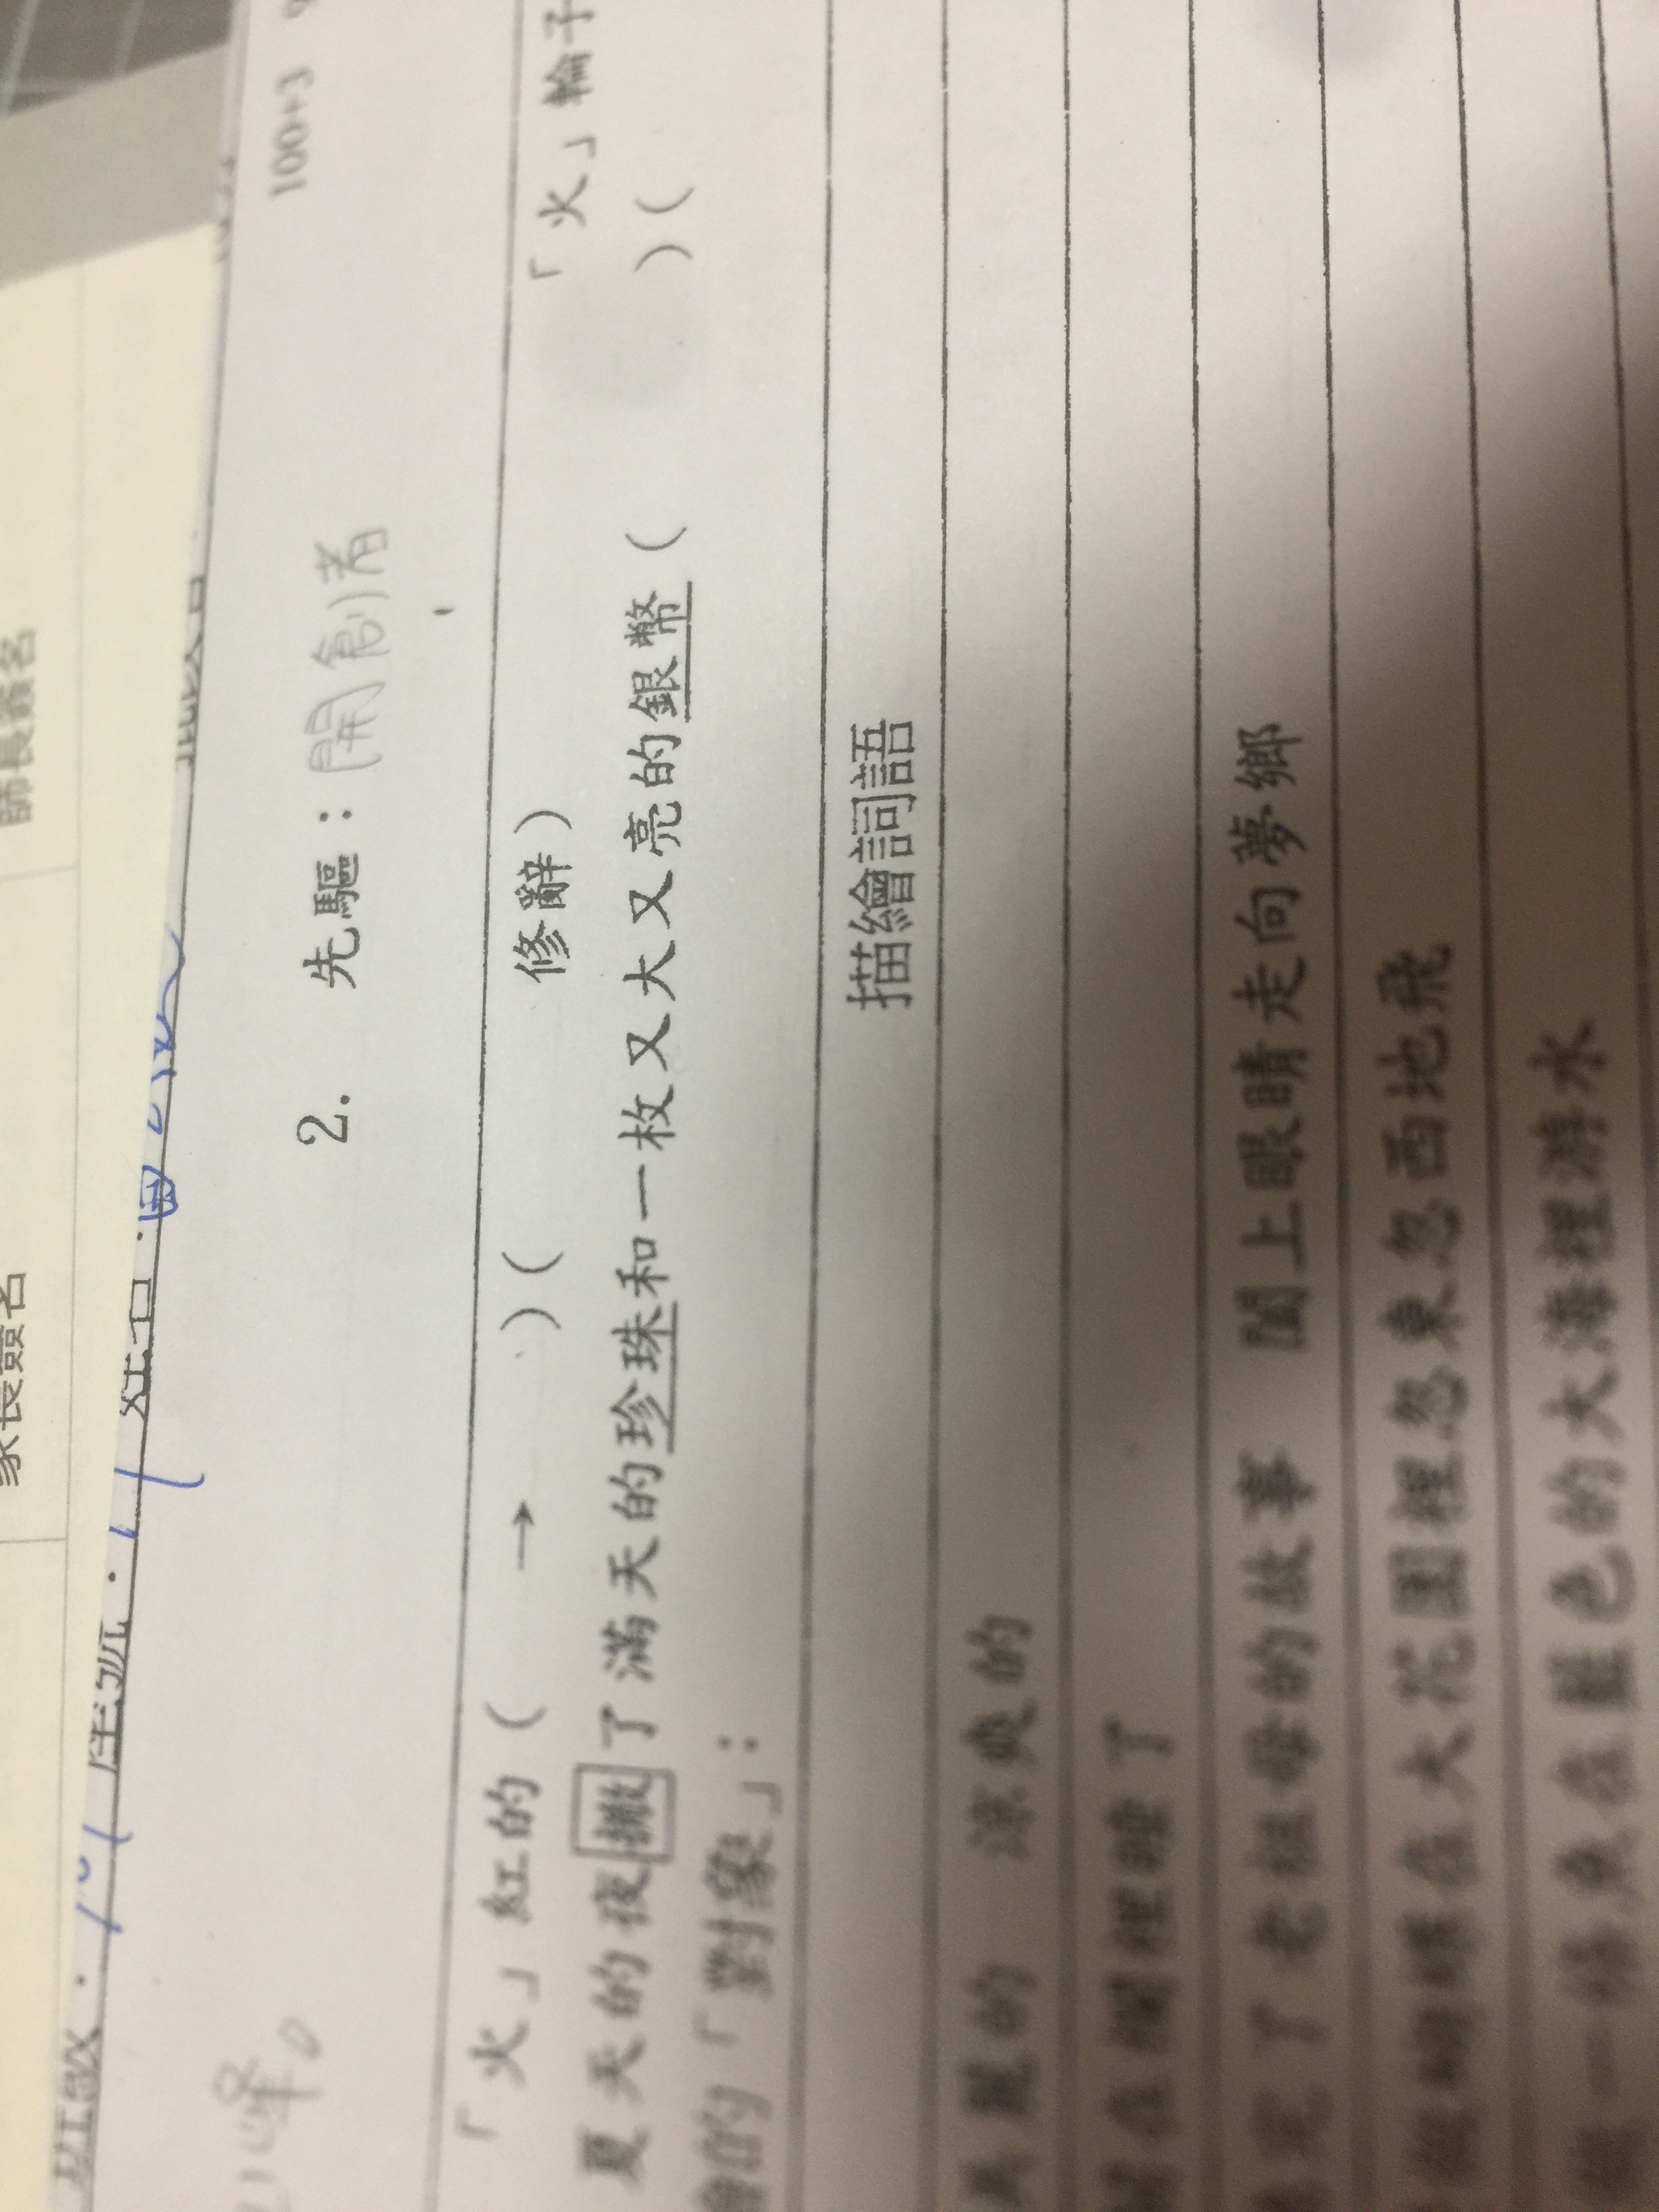 師長簽名
家長簽名
100+3
2. 先驅：開創者
峰。
「火」紅的（ → ）（ 修辭） 「火」輪子
夏天的夜撒了滿天的珍珠和一枚又大又亮的銀幣（ ）（
的「對象」：
描繪詞語
美麗的 涼爽的
在網裡睡了
完了老祖母的故事 闔上眼睛走向夢鄉
蝴蝶在大花園裡忽東忽西地飛
一條魚在藍色的大海裡游水